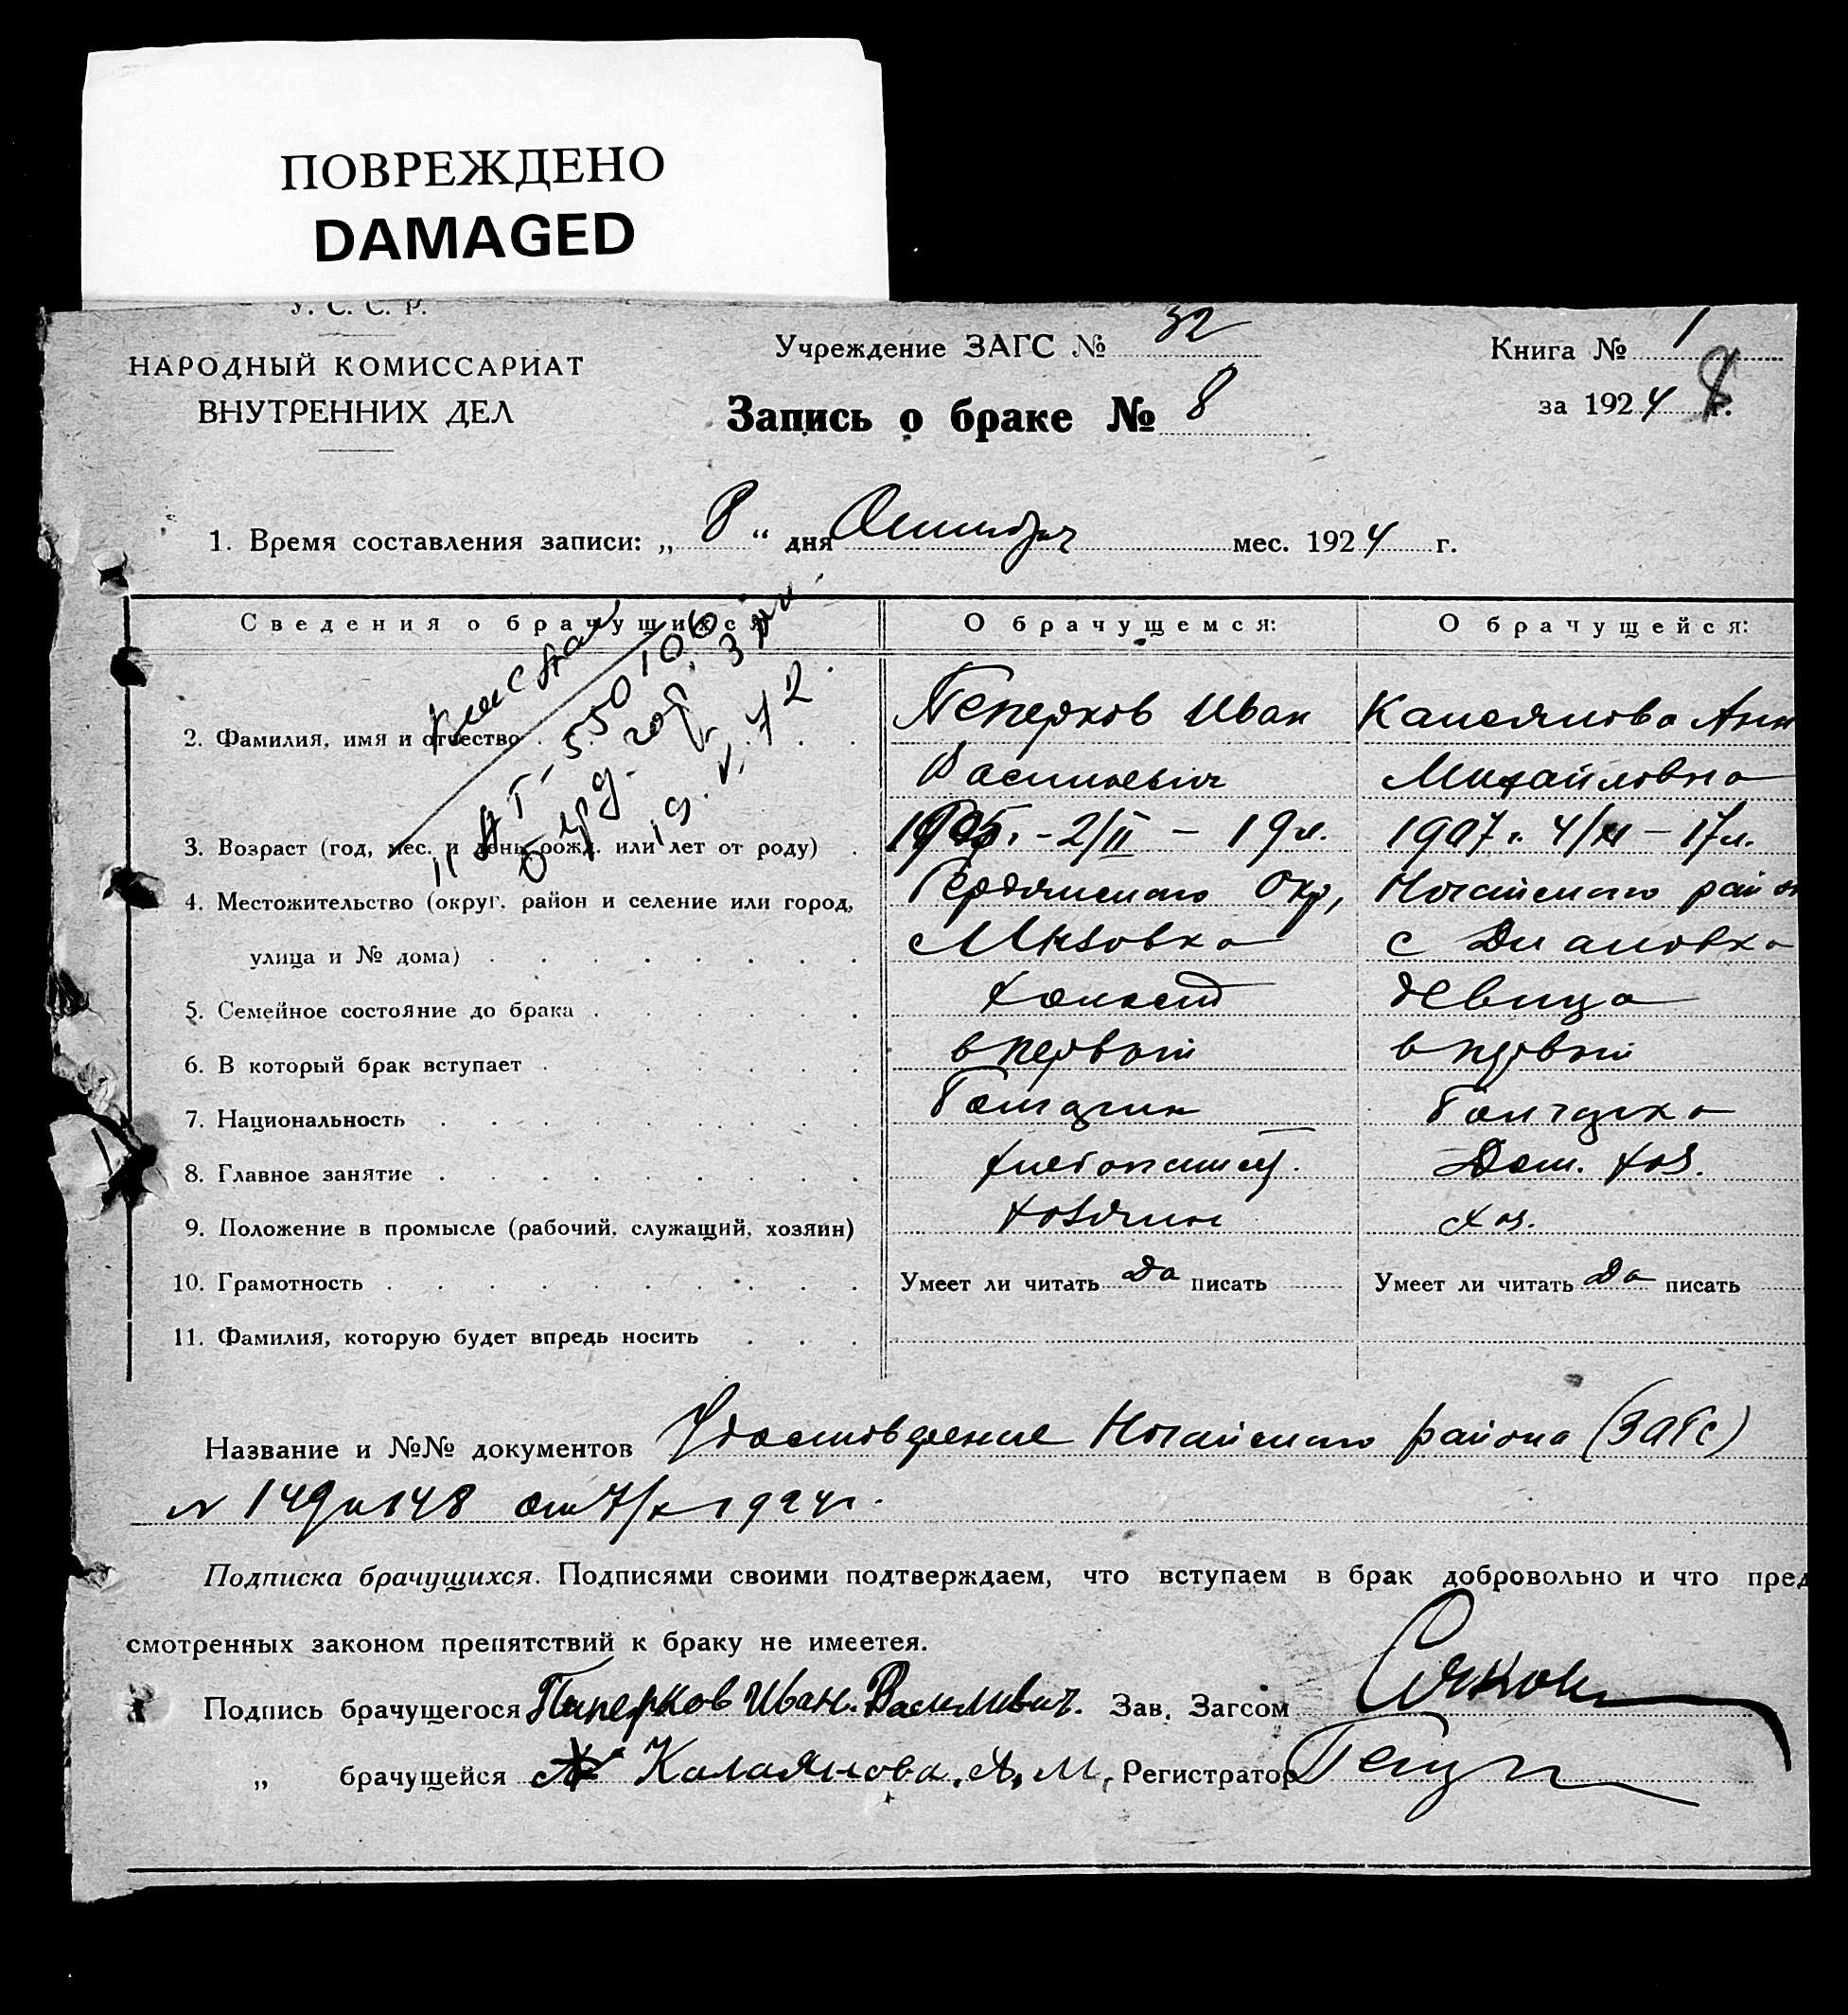 ПОВРЕЖДЕНО
DAMAGED
У. С. С. Р.
НАРОДНЫЙ КОМИССАРИАТ
ВНУТРЕННИХ ДЕЛ
Учреждение ЗАГС № 32
Запись о браке № 8
Книга № 1
за 1924 г. 8
1. Время составления записи: „ 8 “ дня Октября мес. 1924 г.
Сведения о брачущихся
О брачущемся:
О брачущейся:
2. Фамилия, имя и отчество
Пеперков Иван
Васильевич
Калоянова Анн
Михайловна
3. Возраст (год, мес. и день рожд. или лет от роду)
1905 г. - 2/II - 19 л.
1907 г. 4/XI - 17 л.
4. Местожительство (округ, район и селение или город,
улица и № дома)
Бердянского Окр,
с Инзовка
Ногайского район
с Диановка
5. Семейное состояние до брака
холост
девица
6. В который брак вступает
в первый
в первый
7. Национальность
Болгарин
Болгарка
8. Главное занятие
хлебопашец.
Дом. хоз.
9. Положение в промысле (рабочий, служащий, хозяин)
хозяин
хоз.
10. Грамотность
Умеет ли читать да писать
Умеет ли читать да писать
11. Фамилия, которую будет впредь носить
Название и №№ документов Удостоверение Ногайского района (ЗАГС)
№ 149 и 148 от 7/X 1924 г.
Подписка брачущихся. Подписями своими подтверждаем, что вступаем в брак добровольно и что пред
смотренных законом препятствий к браку не имеетея.
Подпись брачущегося Пиперков Иван. Василивич. Зав. Загсом
„ брачущейся Калоянова. А. М. Регистратор